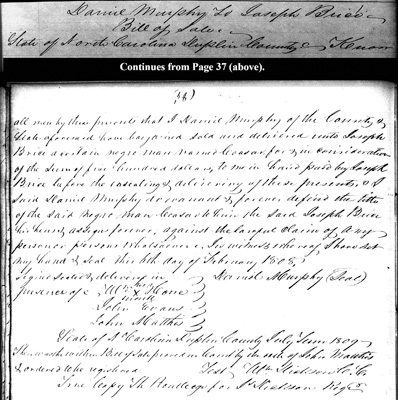 Daniel Murphy To Joseph Brice
Bill of Sale
State of North Carolina Duplin County Know
Continues from Page 37 (above).
(38)
all men by these presents that I Daniel Murphy of the County &
State aforesaid have bargained sold and delivered unto Joseph
Brice a certain negro man named Ceasar for & in consideration
of the Sum of five hundred dollars to me in hand paid by Joseph
Brice before the ensealing & delivering of these presents & I
said Daniel Murphy do warrant & forever defend the title
of the said negro man Ceasar to him the said Joseph Brice
his heirs & assigns forever, against the lawful claim of any
person or persons whatsoever. In witness whereof I have set
my hand & seal this 6th day of February 1808,
signed sealed & delivering in Daniel Murphy (Seal)
presence of Wm his X Hone
mark
John Evans
John Matthis
State of No Carolina Duplin County July Term 1809
Then was the within Bill of Sale proved in Court by the oath of John Matthis
& ordered to be registered Test Wm Dickson C. C.
True Copy